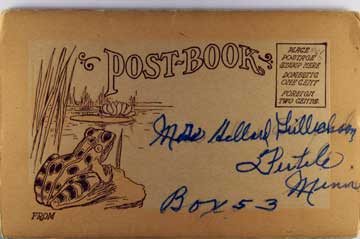 POST-BOOK
PLACE
POSTAGE
STAMP HERE
DOMESTIC
ONE CENT
FOREIGN
TWO CENTS.
Fertile
Minn
Box 53
FROM